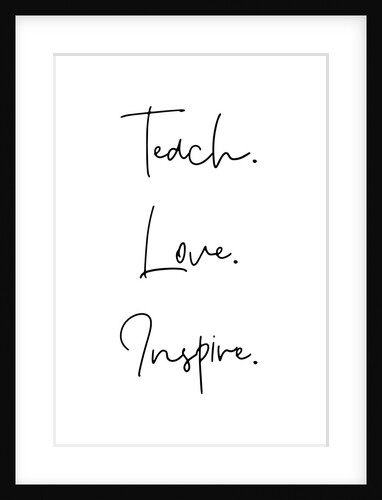 Teach.
Love.
Inspire.